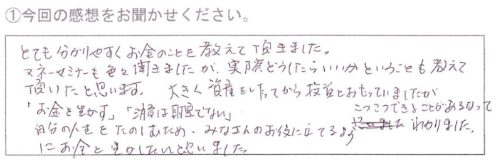 ①今回の感想をお聞かせください。
とても分かりやすくお金のことを教えて頂きました。
マネーセミナーも色々聞きましたが、実際どうしたらいいかということも教えて
頂いたと思います。大きく資産をしてから投資とおもっていましたが
こつこつできることがあるなって
「お金を生かす」「消費は」
自分の人生をたのしむため、みなさんのお役に立てるよう わかりました。
にお金を生かしたいと思いました。